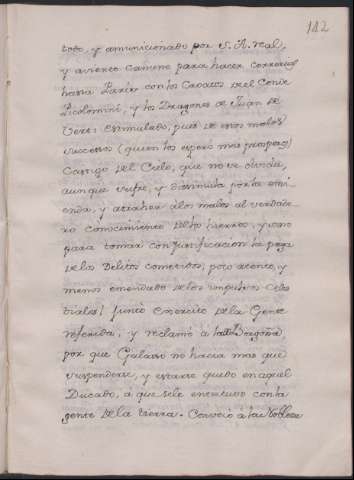 112
todo, y amunicionado por S. A. Real,
y avierto Camino para hacer correrias
hasta Paris con los Croatos del Conde
Picolomini, y los Dragones de Juan de
Vert: estimulado, pues de estos malos
successos (quien los esperó mas prosperos)
Castigo del Cielo, que no se olvida,
aunque sufre, y dissimula por la emi
enda, y atraher a los malos al verdade
ro conocimiento de sus hierros, y
para tomar con justificacion la paga
de los Delitos cometidos; poco atento, y
menos emendado de los impulsos Celes
tiales; juntó Exercito de la Gente
referida, y reclamó à la Borgoña,
por que Galasso no hacia mas que
suspenderse, y estarse quedo en aquel
Ducado, à que se le entretuvo con la
gente de la tierra. Convocó à la Nobleza